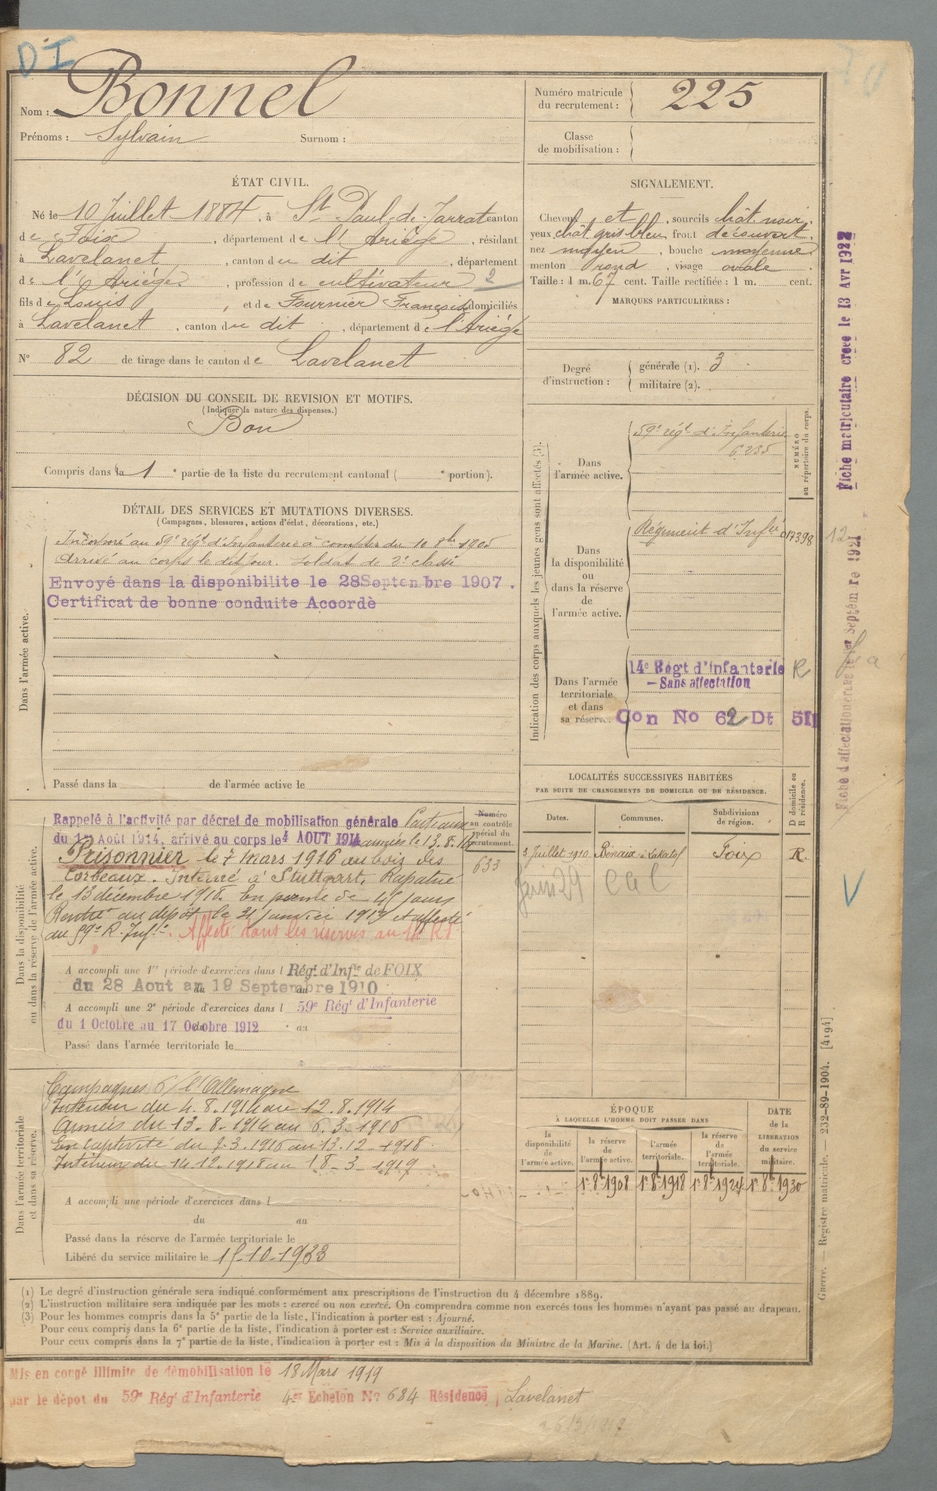 DI
Nom : Bonnel
Prénoms : Sylvain Surnom :
Numéro matricule du recrutement : 225
Classe de mobilisation :
ÉTAT CIVIL.
Né le 10 Juillet 1884, à St Paul-de-Jarrat canton
de Foix, département de l'Ariège, résidant
à Lavelanet, canton du dit, département
de l'Ariège, profession de cultivateur 2
fils de Louis, et de Fournier Françoise domiciliés
à Lavelanet, canton du dit, département de l'Ariège
N° 82 de tirage dans le canton de Lavelanet
SIGNALEMENT.
Cheveux et, sourcils chât noir,
yeux chât gris bleu front découvert,
nez moyen, bouche moyenne
menton rond, visage ovale.
Taille : 1 m. 67 cent. Taille rectifiée : 1 m. cent.
MARQUES PARTICULIÈRES :
Degré d'instruction : générale (1). 3
militaire (2).
DÉCISION DU CONSEIL DE REVISION ET MOTIFS.
(Indiquer la nature des dispenses.)
Bon
Compris dans la 1e partie de la liste du recrutement cantonal ( e portion).
DÉTAIL DES SERVICES ET MUTATIONS DIVERSES.
(Campagnes, blessures, actions d'éclat, décorations, etc.)
Dans l'armée active.
Incorporé au 59e régt d'Infanterie à compter du 10 8bre 1905
Arrivé au corps le dit jour. Soldat de 2e classe
Envoyé dans la disponibilite le 28 Septembre 1907.
Certificat de bonne conduite Accordè
Passé dans la de l'armée active le
Indication des corps auxquels les jeunes gens sont affectés (3).
NUMÉRO au répertoire du corps.
Dans l'armée active.
59e régt d'Infanterie
6.235
Dans la disponibilité ou dans la réserve de l'armée active.
Régiment d'Infie 014398
Dans l'armée territoriale et dans sa réserve.
14e Régt d'infanterie R
- Sans affectation
Con No 62 Dt 511
Fiche matriculaire créée le 13 Avr 1922
Fiche d'affectation Septembre 1921
12
Dans la disponibilité ou dans la réserve de l'armée active.
Rappelé à l'activité par décret de mobilisation générale
du 1er Août 1914, arrivé au corps le 4 AOUT 1914 armées le 13.8.14
Prisonnier le 7 mars 1916 au bois des
Corbeaux. Interné à Stuttgart. Rapatrié
le 13 décembre 1918. En permon de 45 jours
Rentré au dépôt le 31 janvier 1919 et affecté
au 59e R. Infie. Affecté dans les réserves au 14e RI
A accompli une 1re période d'exercices dans l Régt d'Infie de FOIX
du 28 Aout au 19 Septembre 1910
A accompli une 2e période d'exercices dans l 59e Régt d'Infanterie
du 1 Octobre au 17 Octobre 1912 au
Passé dans l'armée territoriale le
Numéro au contrôle spécial du recrutement.
633
LOCALITÉS SUCCESSIVES HABITÉES
PAR SUITE DE CHANGEMENTS DE DOMICILE OU DE RÉSIDENCE.
Dates. Communes. Subdivisions de région. D domicile ou R résidence.
3 Juillet 1910 Foix R.
29
Dans l'armée territoriale et dans sa réserve.
Campagnes c/ l'Allemagne
Intérieur du 4.8.1914 au 12.8.1914
Armées du 13.8.1914 au 6.3.1916
En captivité du 7-3-1916 au 13.12-1918
Intérieur du 14.12.1918 au 18-3-1919
A accompli une période d'exercices dans l
du au
Passé dans la réserve de l'armée territoriale le
Libéré du service militaire le 15-10-1933
ÉPOQUE
À LAQUELLE L'HOMME DOIT PASSER DANS
DATE de la LIBÉRATION du service militaire.
la disponibilité de l'armée active. la réserve de l'armée active. l'armée territoriale. la réserve de l'armée territoriale.
1r 8bre 1908 1r 8bre 1918 1r 8bre 1924 1r 8bre 1930
Guerre. — Registre matricule. 332-89-1904. [4194]
(1) Le degré d'instruction générale sera indiqué conformément aux prescriptions de l'instruction du 4 décembre 1889.
(2) L'instruction militaire sera indiquée par les mots : exercé ou non exercé. On comprendra comme non exercés tous les hommes n'ayant pas passé au drapeau.
(3) Pour les hommes compris dans la 5e partie de la liste, l'indication à porter est : Ajourné.
Pour ceux compris dans la 6e partie de la liste, l'indication à porter est : Service auxiliaire.
Pour ceux compris dans la 7e partie de la liste, l'indication à porter est : Mis à la disposition du Ministre de la Marine. (Art. 4 de la loi.)
Mis en congé illimité de démobilisation le 18 Mars 1919
par le dépot du 59e Régt d'Infanterie 4e Echelon No 684 Résidence Lavelanet